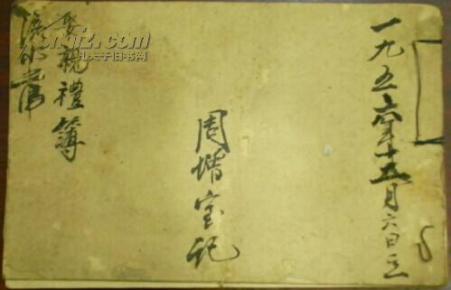 一九五六年十五月六日立
周堦宝记
娶親禮簿
kongfz.com
孔夫子旧书网